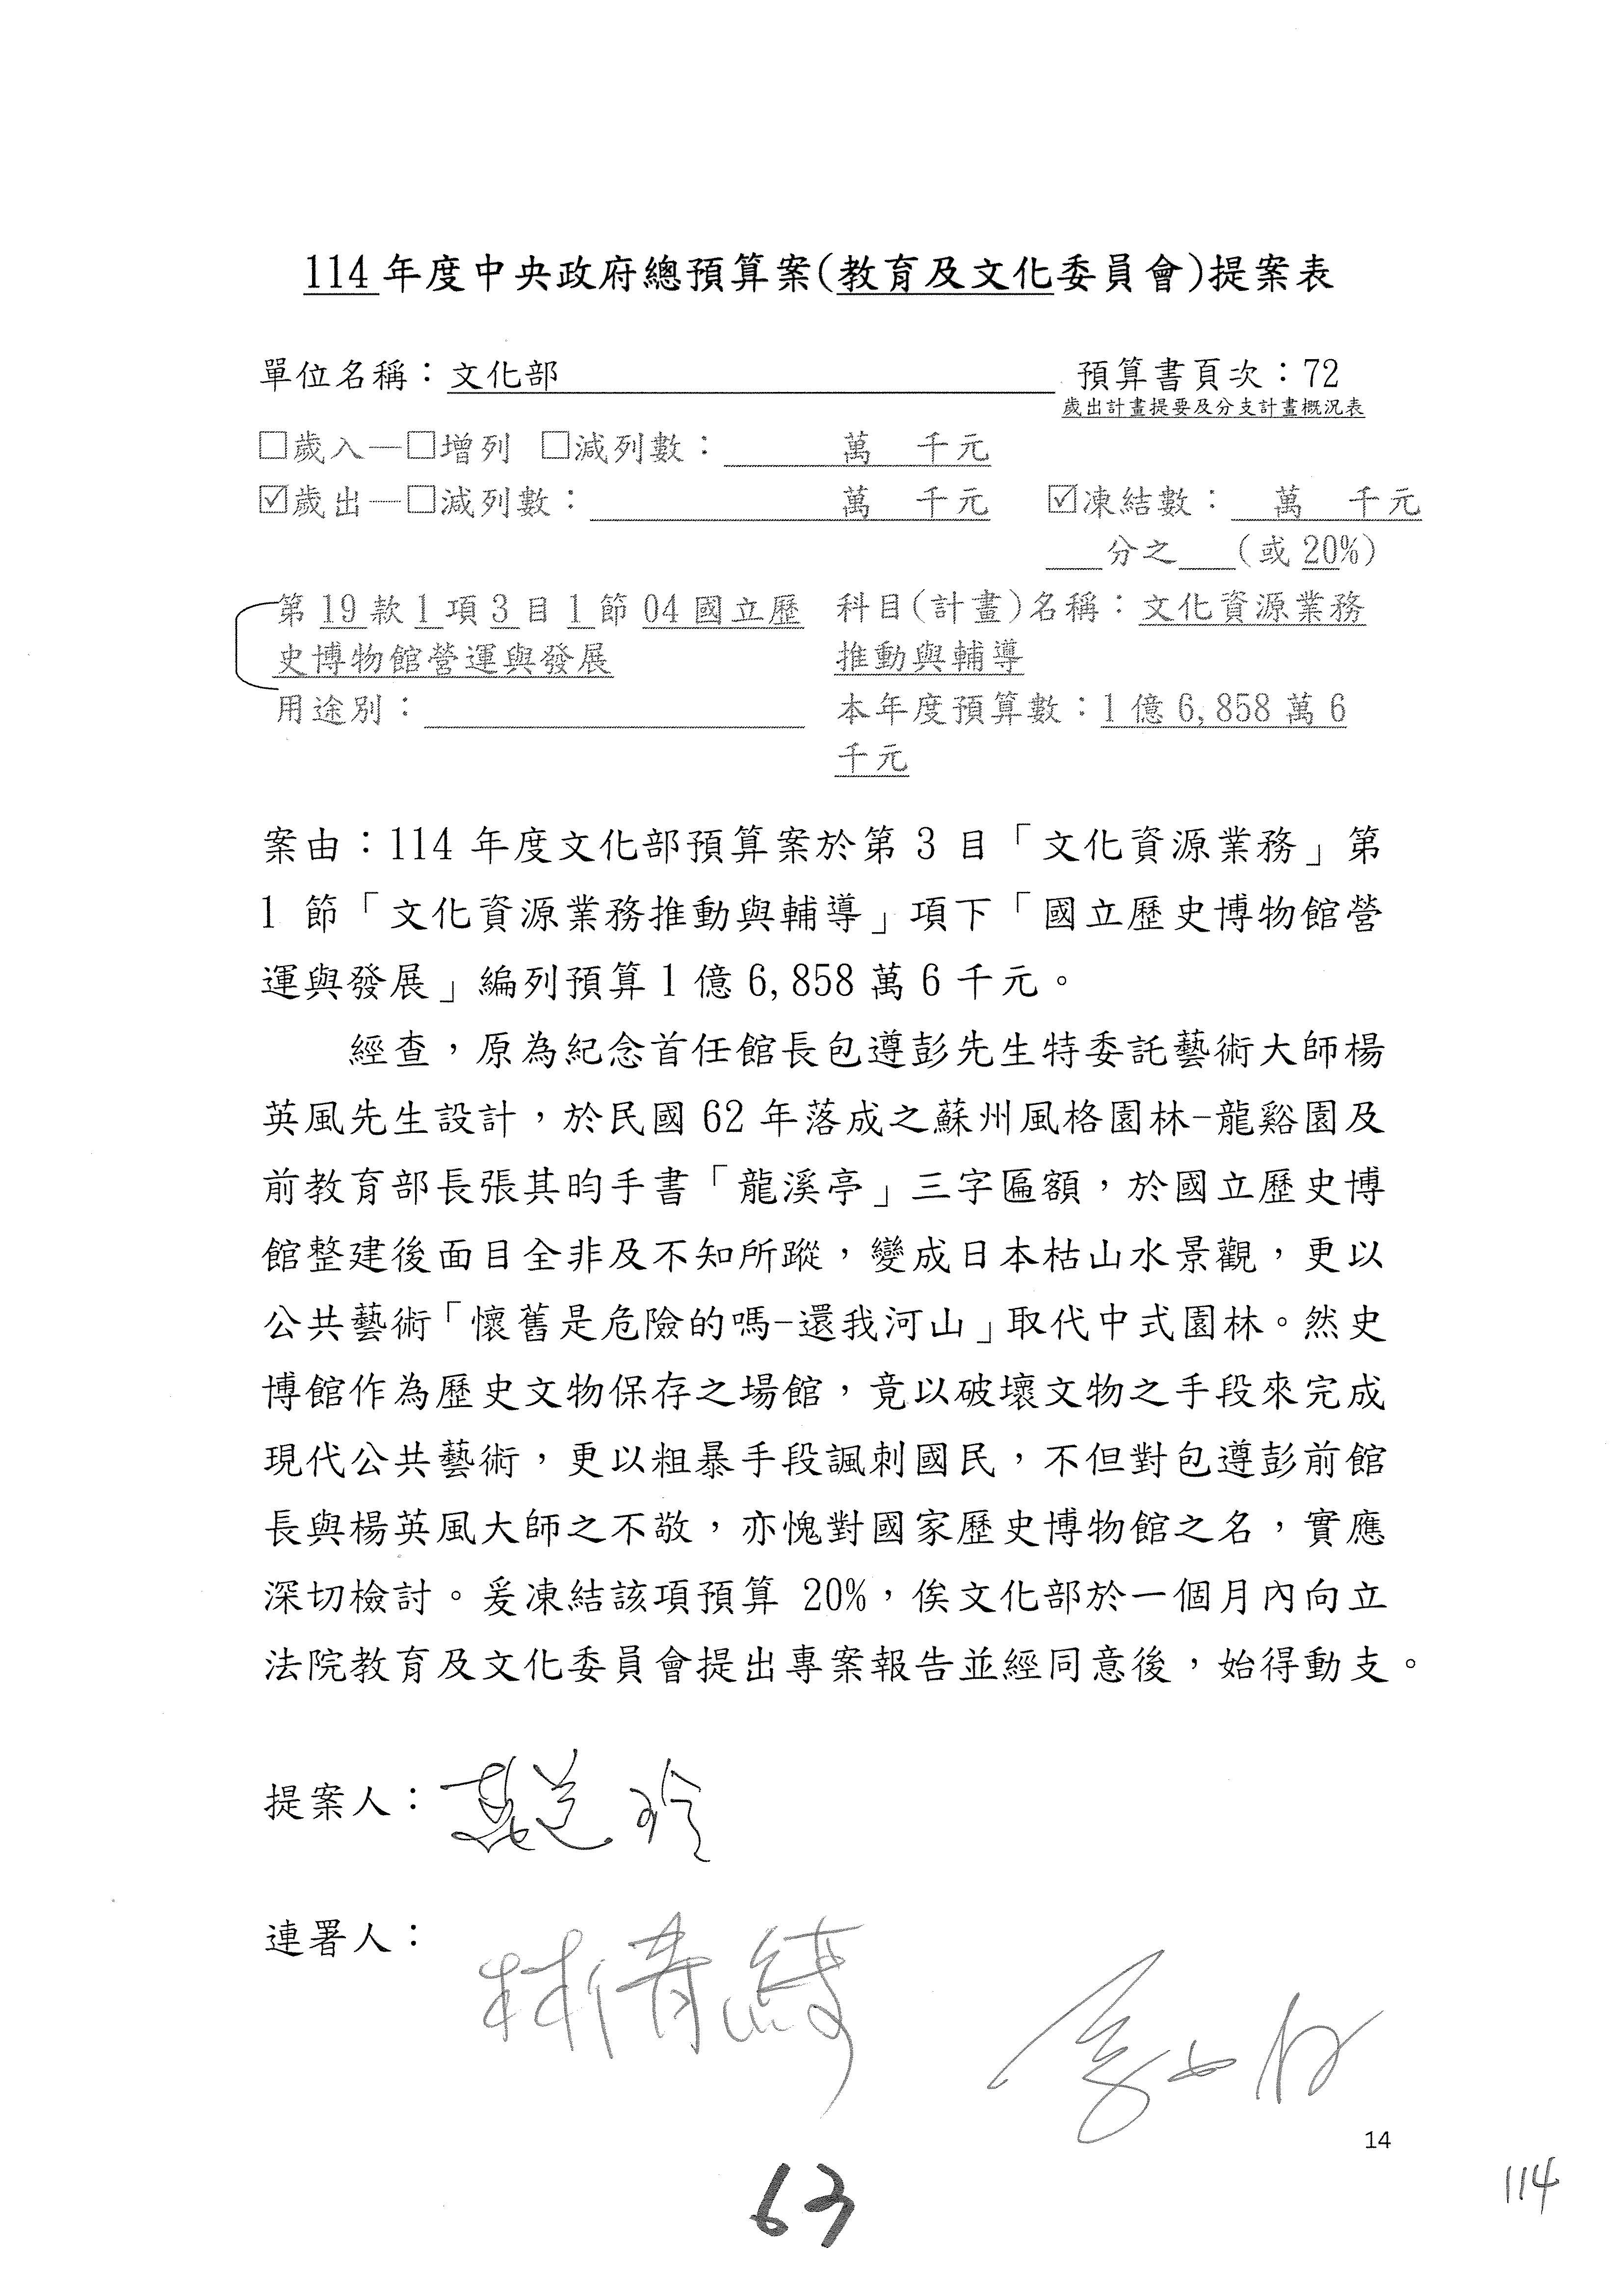 114年度中央政府總預算案(教育及文化委員會)提案表
單位名稱：文化部 預算書頁次：72
歲出計畫提要及分支計畫概況表
□歲入—□增列 □減列數： 萬 千元
☑歲出—□減列數： 萬 千元 ☑凍結數： 萬 千元
分之 (或 20%)
第 19 款 1 項 3 目 1 節 04 國立歷 科目(計畫)名稱：文化資源業務
史博物館營運與發展 推動與輔導
用途別： 本年度預算數：1 億 6,858 萬 6
千元
案由：114 年度文化部預算案於第 3 目「文化資源業務」第
1 節「文化資源業務推動與輔導」項下「國立歷史博物館營
運與發展」編列預算 1 億 6,858 萬 6 千元。
經查，原為紀念首任館長包遵彭先生特委託藝術大師楊
英風先生設計，於民國 62 年落成之蘇州風格園林-龍谿園及
前教育部長張其昀手書「龍溪亭」三字匾額，於國立歷史博
館整建後面目全非及不知所蹤，變成日本枯山水景觀，更以
公共藝術「懷舊是危險的嗎-還我河山」取代中式園林。然史
博館作為歷史文物保存之場館，竟以破壞文物之手段來完成
現代公共藝術，更以粗暴手段諷刺國民，不但對包遵彭前館
長與楊英風大師之不敬，亦愧對國家歷史博物館之名，實應
深切檢討。爰凍結該項預算 20%，俟文化部於一個月內向立
法院教育及文化委員會提出專案報告並經同意後，始得動支。
提案人：
連署人：林倩綺
14
63
114